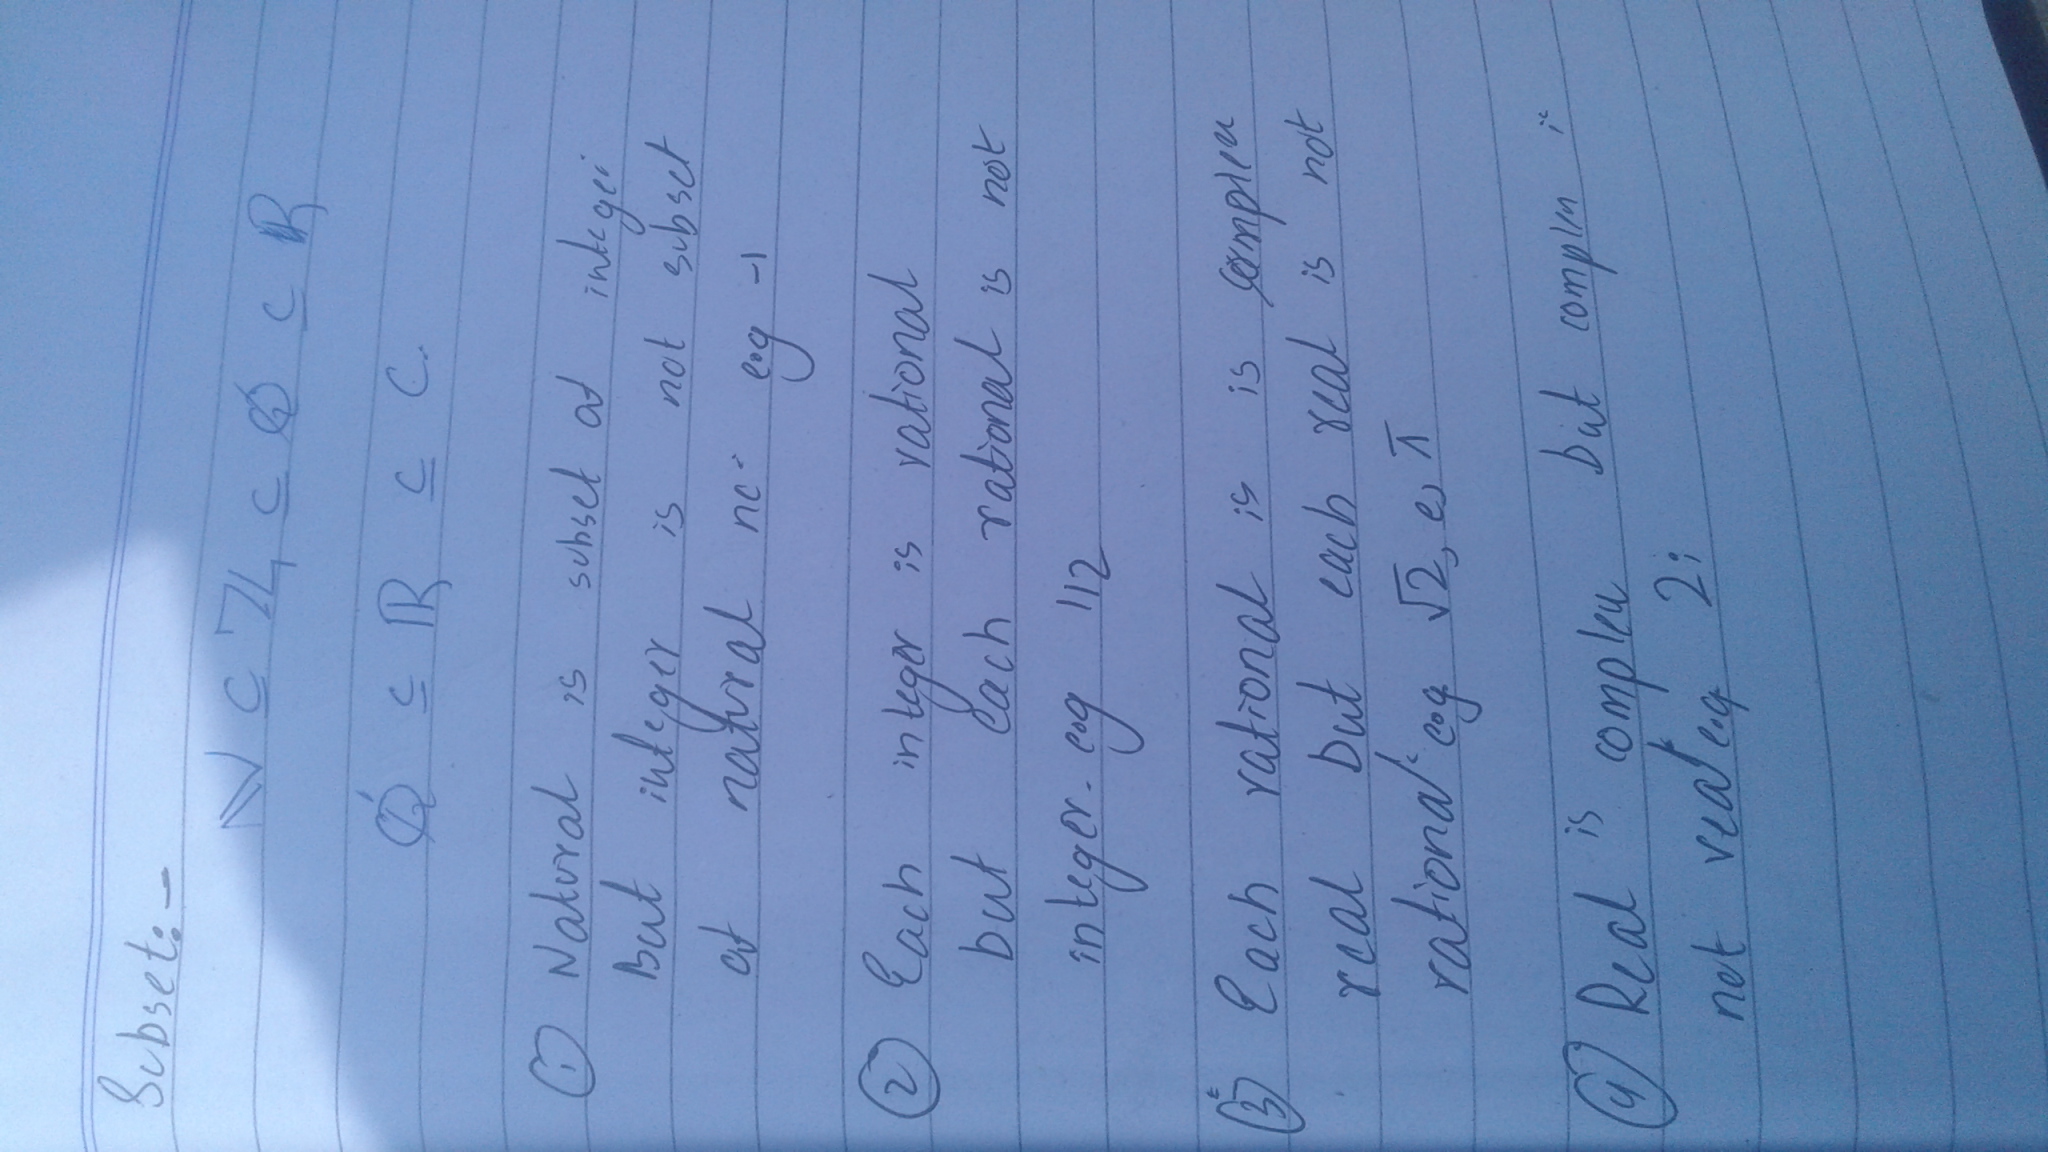 Subset:-
ℕ ⊆ ℤ ⊆ ℚ ⊆ ℝ
ℚ' ⊆ ℝ ⊆ C.
① Natural is subset of integer
But integer is not subset
of natural no. e.g -1
② Each integer is rational
but each rational is not
integer. e.g 1/2
③ Each rational is is complex
real but each real is not
rational e.g. √2, e, π
④ Real is complex but complex is
not real e.g. 2i